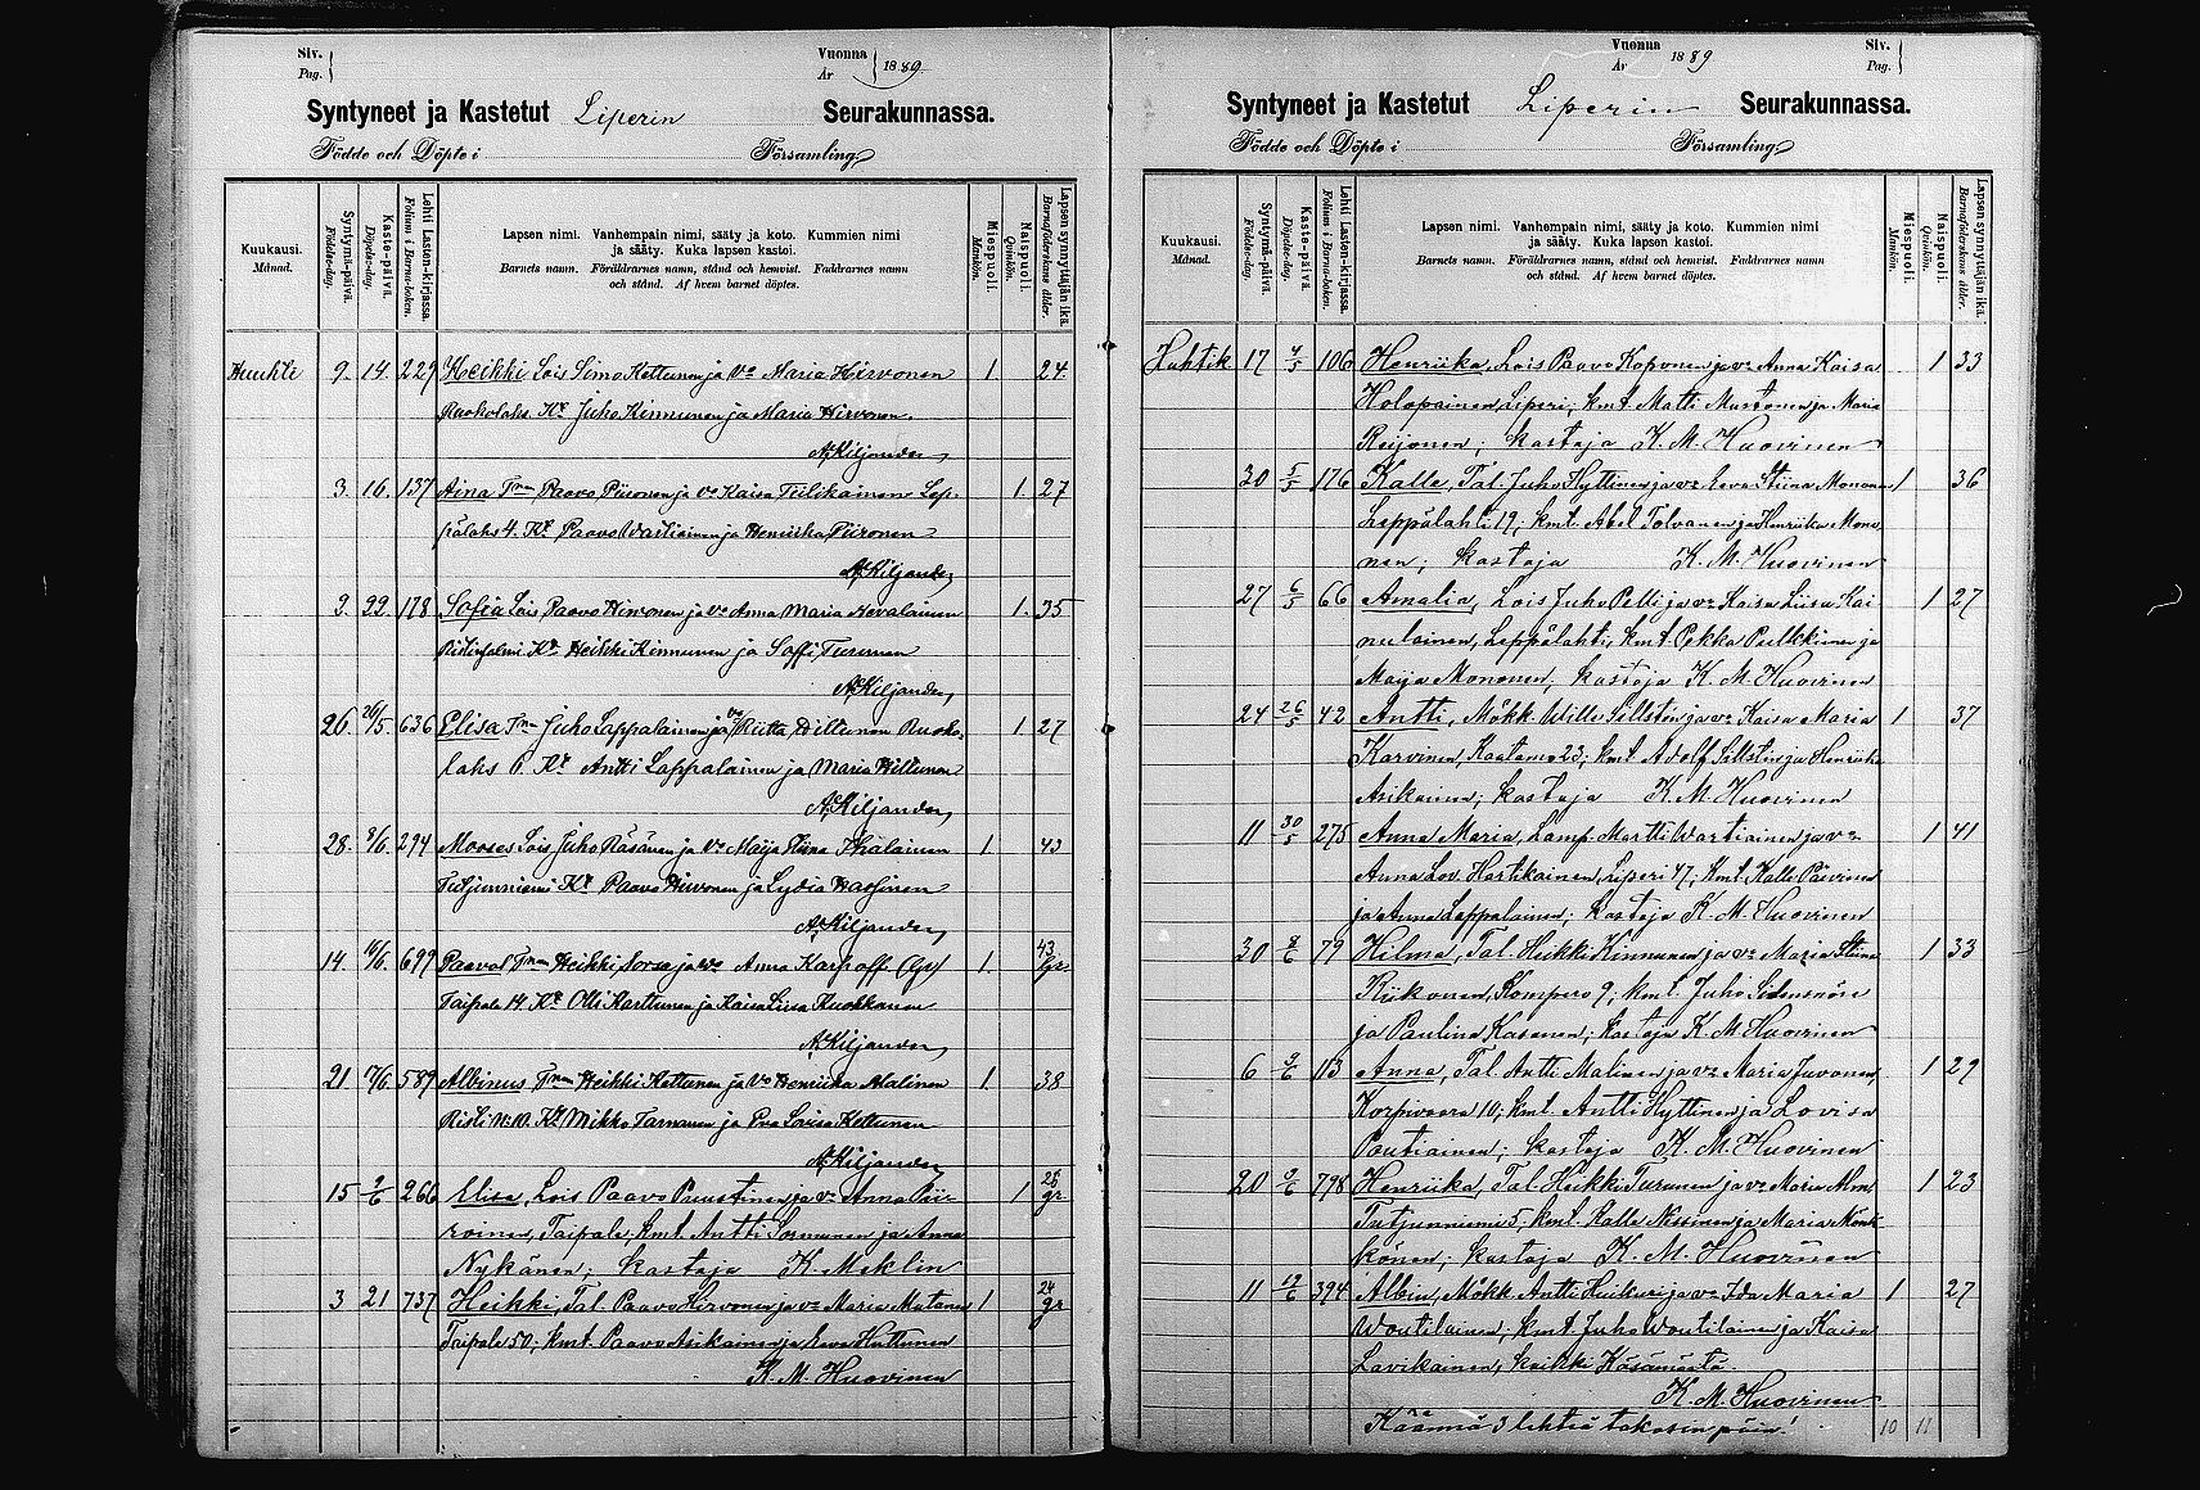 Siv.
Pag.
Vuonna
År
1889.
Syntyneet ja Kastetut Liperin Seurakunnassa.
Födde och Döpte i Församling
Kuukausi.
Månad.
Syntymä-päivä.
Födelse-dag.
Kaste-päivä.
Döpelse-dag.
Lehti Lasten-kirjassa.
Folium i Barna-boken.
Lapsen nimi. Vanhempain nimi, sääty ja koto. Kummien nimi
ja sääty. Kuka lapsen kastoi.
Barnets namn. Föräldrarnes namn, stånd och hemvist. Faddrarnes namn
och stånd. Af hvem barnet döptes.
Miespuoli.
Mankön.
Naispuoli.
Qvinkön.
Lapsen synnyttäjän ikä.
Barnaföderskans ålder.
Huuhti 9. 14. 229 Heikki Lois Simo Kettunen ja Vo Maria Hirvonen 1. 24.
Ruokolaks. Kt Juho Kinnunen ja Maria Hirvonen.
A. Kiljander
3. 16. 137 Aina Tnen Paavo Piironen ja Vo Kaisa Teilikainen Lep- 1. 27
pälaks 4. Kt Paavo Wartiainen ja Henriika Piironen
A. Kiljander
2. 22. 178 Sofia Lois Paavo Hirvonen ja Vo Anna Maria Nevalainen 1. 35
Kt Heikki Kinnunen ja Soffi Turunen
A. Kiljander
26. 26/5. 636 Elisa Tnen Juho Lappalainen ja Vo Riitta Hiltunen Ruoko- 1. 27
laks 6. Kt Antti Lappalainen ja Maria Hiltunen
A. Kiljander
28. 8/6. 294 Mooses Lois Juho Räsänen ja Vo Maija Stiina Ihälainen 1. 43
Tutjunniemi Kt Paavo Hirvonen ja Lydia Hassinen
A. Kiljander
14. 16/6. 699 Paavol Tnen Heikki Sorsa ja Vo Anna Karhoff (Gr) 1. 43 Gr.
Taipale 14. Kt Olli Karttunen ja Kaisa Liisa Kuokkanen
A. Kiljander
21 17/6. 589 Albinus Tnen Heikki Kettunen ja Vo Henriika Malinen 1. 38
Risti N:10. Kt Mikko Tarnanen ja Eva Lovisa Kettunen
A. Kiljander
15 2/6 266 Elisa, Lois Paavo Puustinen ja vo Anna Pii- 1 26 gr.
roinen, Taipale, kmt. Antti Sormunen ja Anna
Nykänen; kastaja K. Meklin
3 21 737 Heikki, Tal. Paavo Hirvonen ja vo Maria Mutanen 1 24 gr
Taipale 50; kmt. Paavo Asikainen ja Eeva Huttunen
K. M. Huovinen
Vuonna
År
1889
Siv.
Pag.
Syntyneet ja Kastetut Liperin Seurakunnassa.
Födde och Döpte i Församling
Kuukausi.
Månad.
Syntymä-päivä.
Födelse-dag.
Kaste-päivä.
Döpelse-dag.
Lehti Lasten-kirjassa.
Folium i Barna-boken.
Lapsen nimi. Vanhempain nimi, sääty ja koto. Kummien nimi
ja sääty. Kuka lapsen kastoi.
Barnets namn. Föräldrarnes namn, stånd och hemvist. Faddrarnes namn
och stånd. Af hvem barnet döptes.
Miespuoli.
Mankön.
Naispuoli.
Qvinkön.
Lapsen synnyttäjän ikä.
Barnaföderskans ålder.
Huhtik. 17 4/5 106 Henriika, Lois Paavo Koponen ja vo Anna Kaisa 1 33
Holopainen, Liperi; kmt. Matti Mustonen ja Maria
Reijonen; kastaja K. M. Huovinen
30 5/5 176 Kalle, Tal. Juho Hyttinen ja vo Eeva Stiina Mononen 1 36
Leppälahti 19; kmt. Abel Tolvanen ja Henriika Mono-
nen; kastaja K. M. Huovinen
27 6/5 66 Amalia, Lois Juho Pelli ja vo Kaisa Liisa Kai- 1 27
nulainen, Leppälahti, kmt. Pekka Pulkkinen ja
Maija Mononen; kastaja K. M. Huovinen
24 26/5 42 Antti, Mökk. Wille Sillstén ja vo Kaisa Maria 1 37
Karvinen, Kaatamo 23; kmt Adolf Sillstén ja Henriika
Asikainen; kastaja K. M. Huovinen
11 30/5 275 Anna Maria, Lamp. Martti Wartiainen ja vo 1 41
Anna Lov. Hartikainen, Liperi 47; kmt. Kalle Päivinen
ja Anna Lappalainen; kastaja K. M. Huovinen
30 8/6 79 Hilma, Tal. Heikki Kinnunen ja vo Maria Stiina 1 33
Kiikonen, Kompero 9; kmt. Juho Sidensnöre
ja Paulina Kasanen; kastaja K. M. Huovinen
6 9/6 113 Anna, Tal. Antti Malinen ja vo Maria Juvonen, 1 29
Korpivaara 10; kmt. Antti Hyttinen ja Lovisa
Poutiainen; kastaja K. M. Huovinen
20 9/6 798 Henriika, Tal. Heikki Turunen ja vo Maria Alm, 1 23
Tutjunniemi 5; kmt. Kalle Nissinen ja Maria Mönk-
könen; kastaja K. M. Huovinen
11 19/6 394 Albin, Mökk. Antti Huikuri ja vo Ida Maria 1 27
Woutilainen; kmt. Juho Woutilainen ja Kaisa
Lavikainen, kaikki Käsämästä.
K. M. Huovinen
Käännä 3 lehteä takasin päin! 10 11